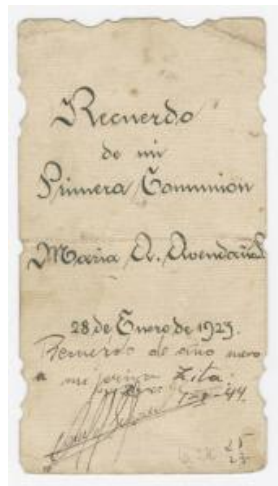 Recuerdo
de mi
Primera Communion
Maria A. Avendaño
28 de Enero de 1923.
Recuerdo de año nuevo
a mi prima Zita.
1-1-44
25
25